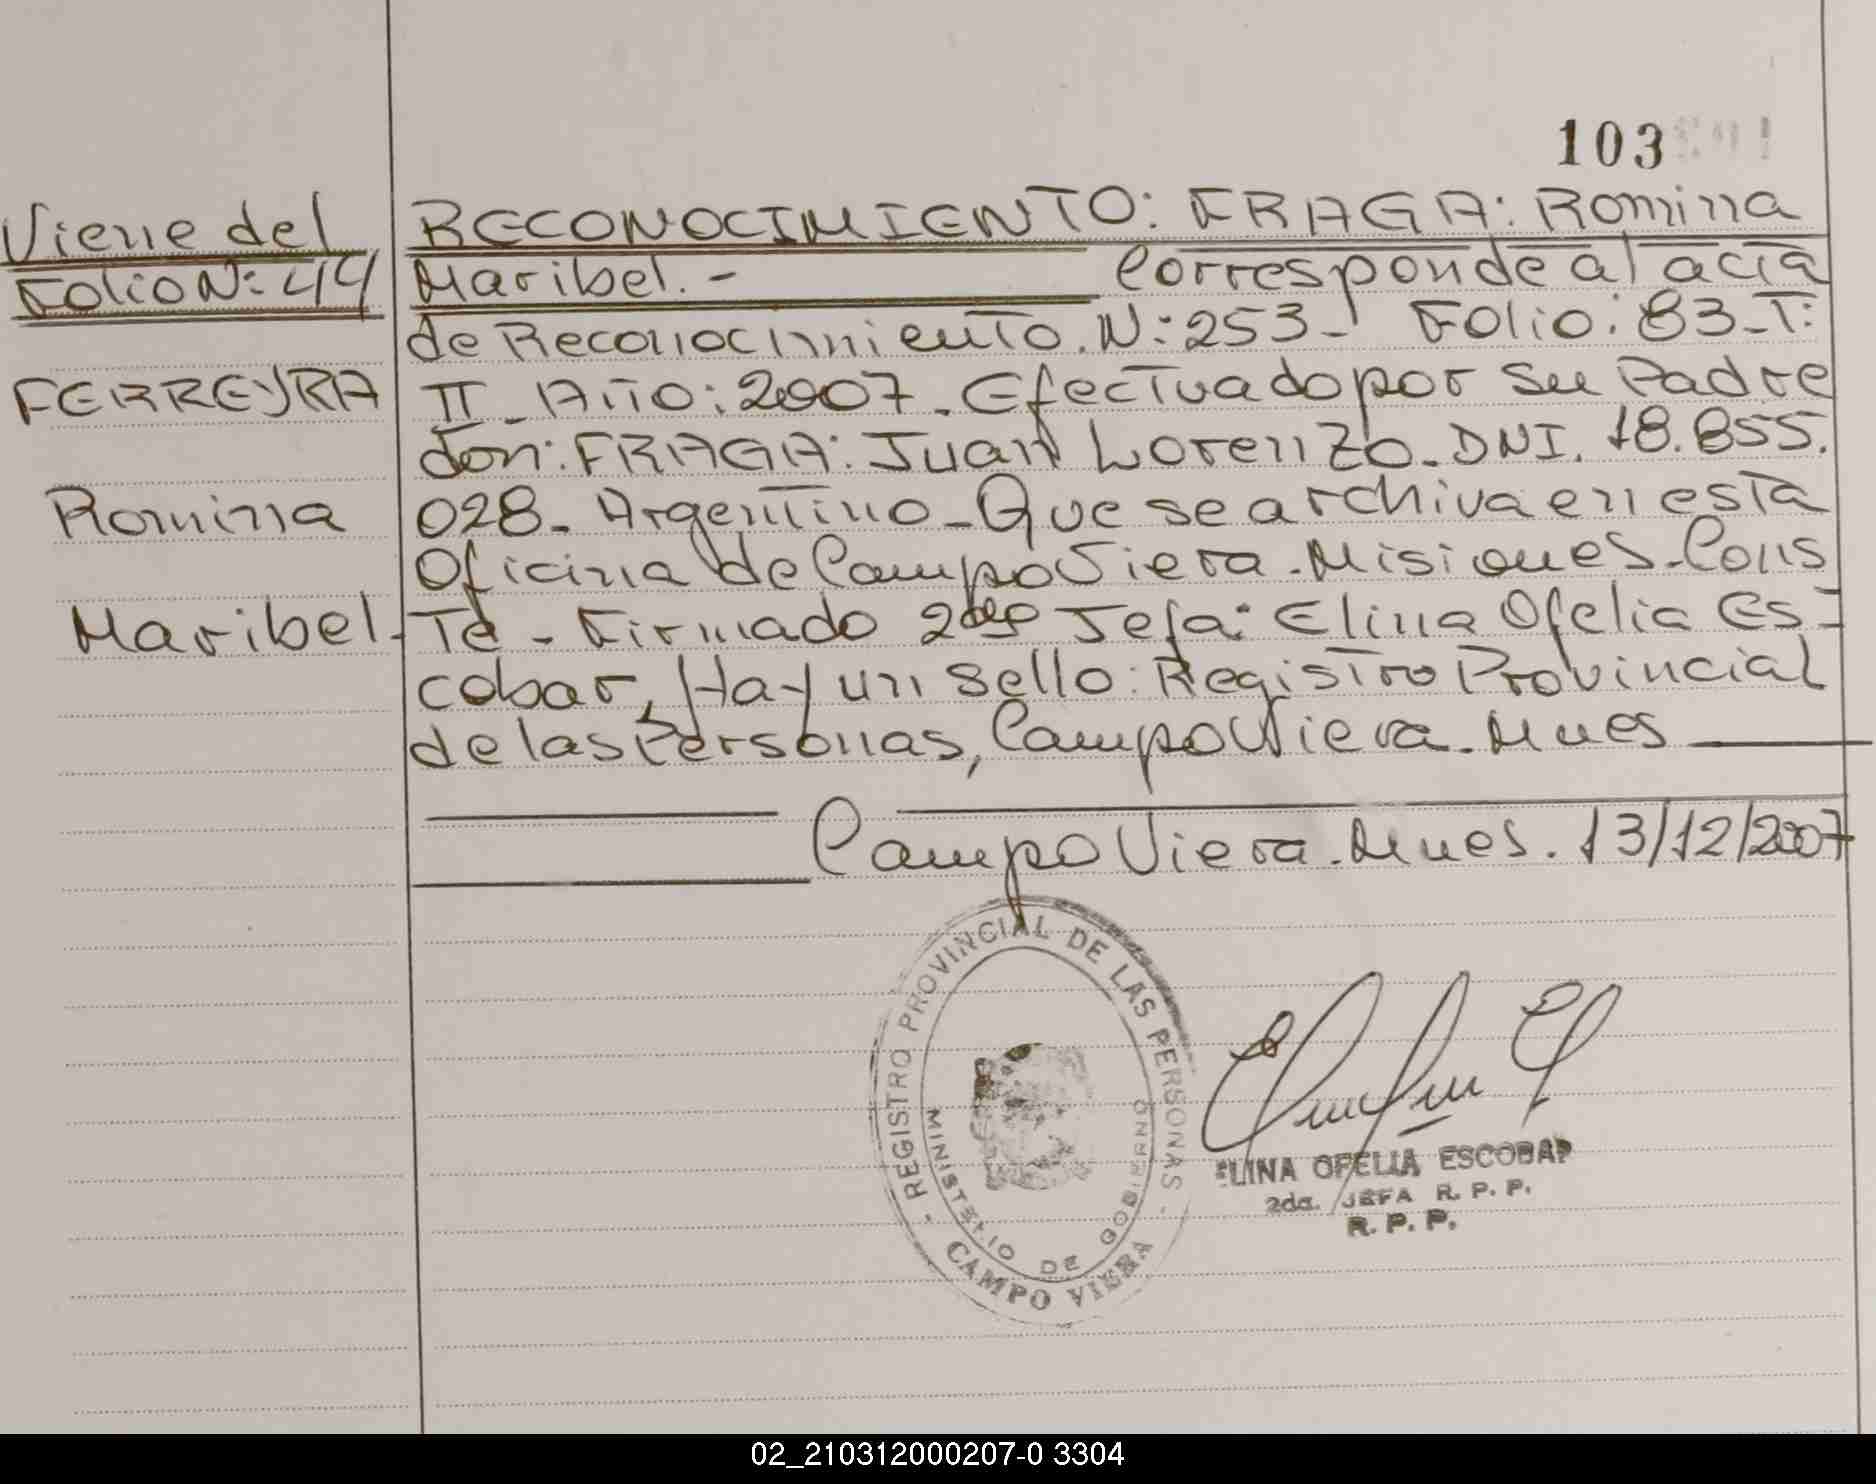 103
Viene del
Folio N: 44
FERREYRA
Romina
Maribel-
RECONOCIMIENTO: FRAGA: Romina
Maribel.- Corresponde al acta
de Reconocimiento. N: 253- Folio: 83-T:
II- Año: 2007. Efectuado por su Padre
don: FRAGA: Juan Lorenzo. DNI. 18.855.
028- Argentino- Que se archiva en esta
Oficina de Campo Viera. Misiones. Cons
Te - Firmado 2da Jefa: Elina Ofelia Es-
cobar, Hay un sello: Registro Provincial
de las Personas, Campo Viera. Mnes
Campo Viera. Mnes. 13/12/2007
- REGISTRO PROVINCIAL DE LAS PERSONAS -
MINISTERIO DE GOBIERNO
CAMPO VIERA
ELINA OFELIA ESCOBAR
2da. JEFA R. P. P.
R. P. P.
02_210312000207-0 3304